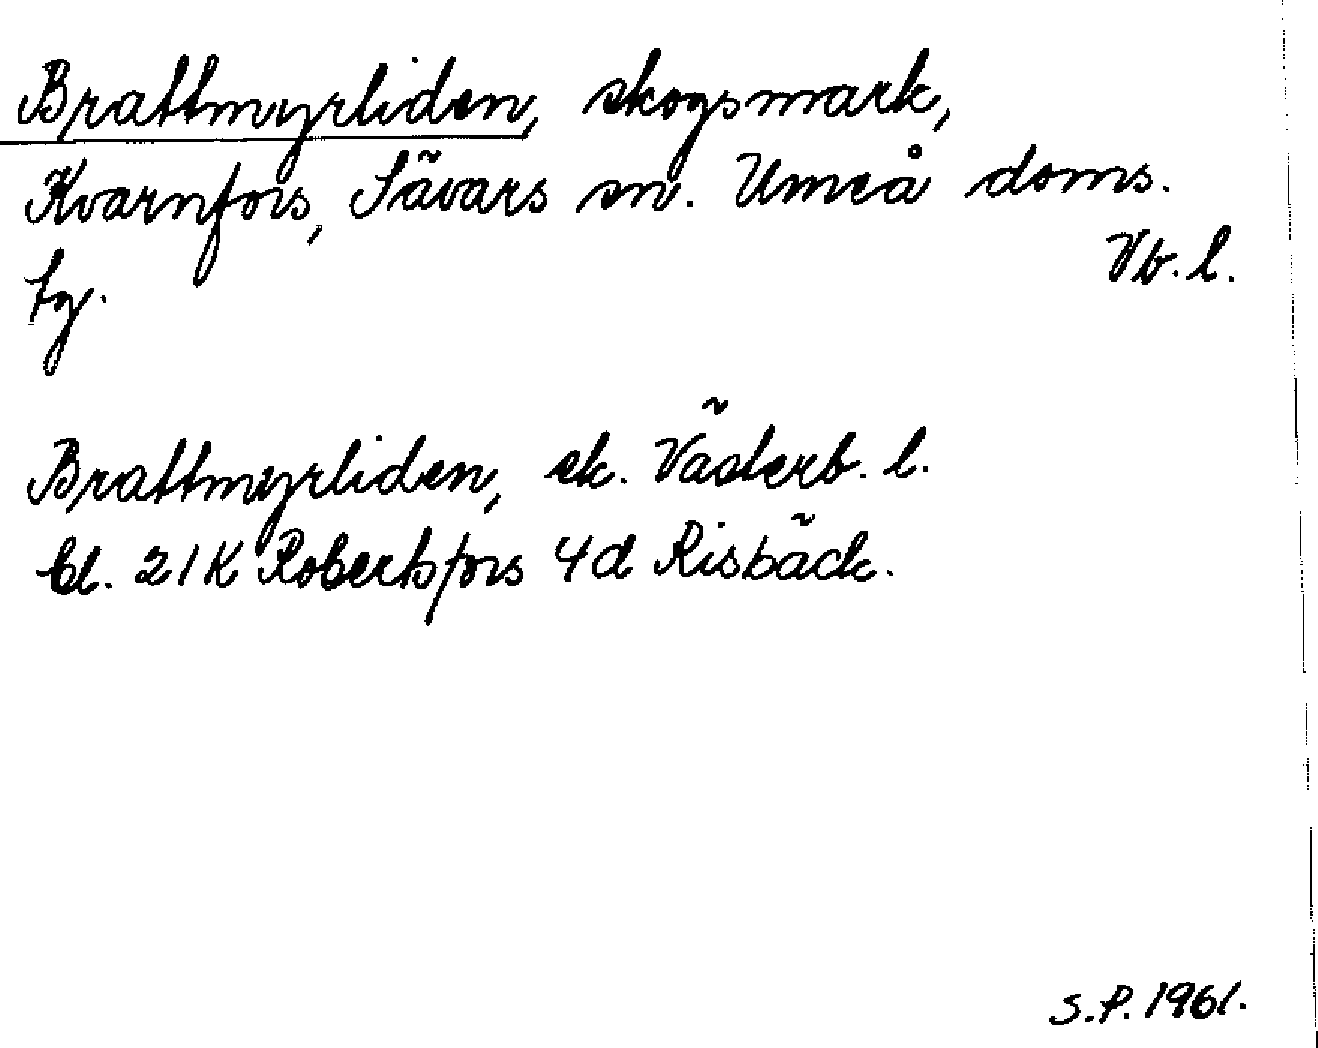 Brattmyrliden, skogsmark,
Kvarnfors, Sävars sn. Umeå doms.
tg. Vb. l.
Brattmyrliden, ek. Väderb. l.
bl. 21K Robertsfors 4d Risbäck.
S.P. 1961.